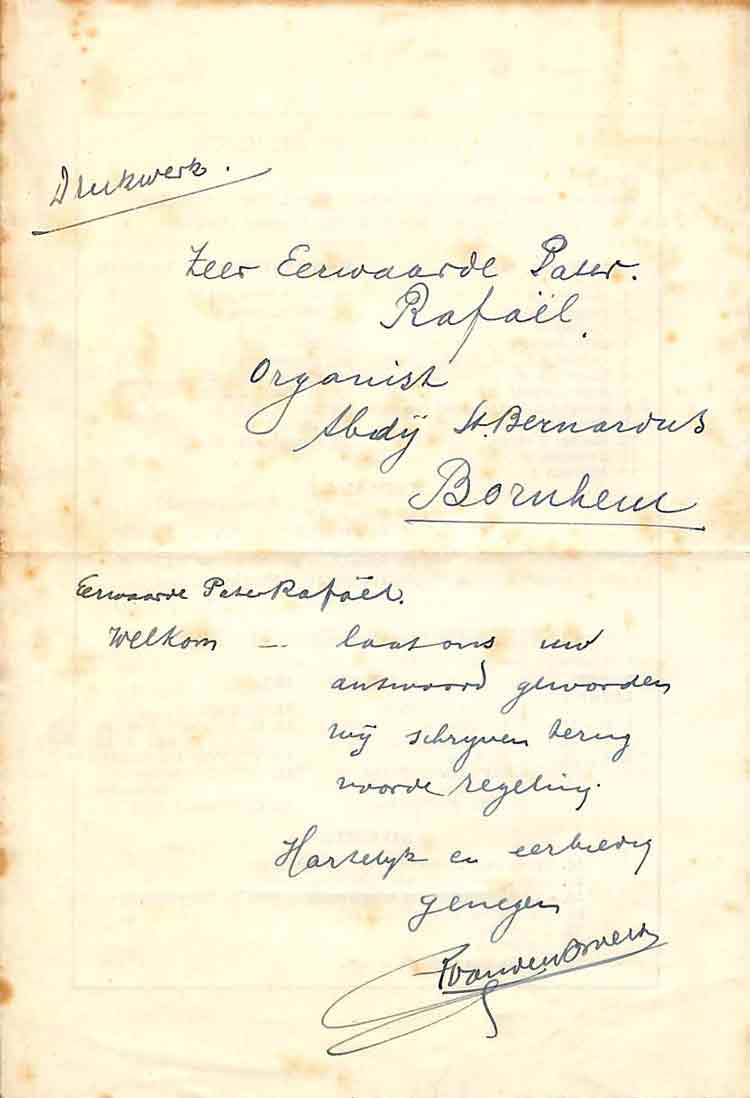 Drukwerk.
Zeer Eerwaarde Pater.
Rafaël.
Organist
Abdij St. Bernardus
Bornhem
Eerwaarde Pater Rafaël.
Welkom -- laat ons uw
antwoord geworden
wij schrijven terug
voor de regeling.
Hartelijk en eerbiedig
genegen